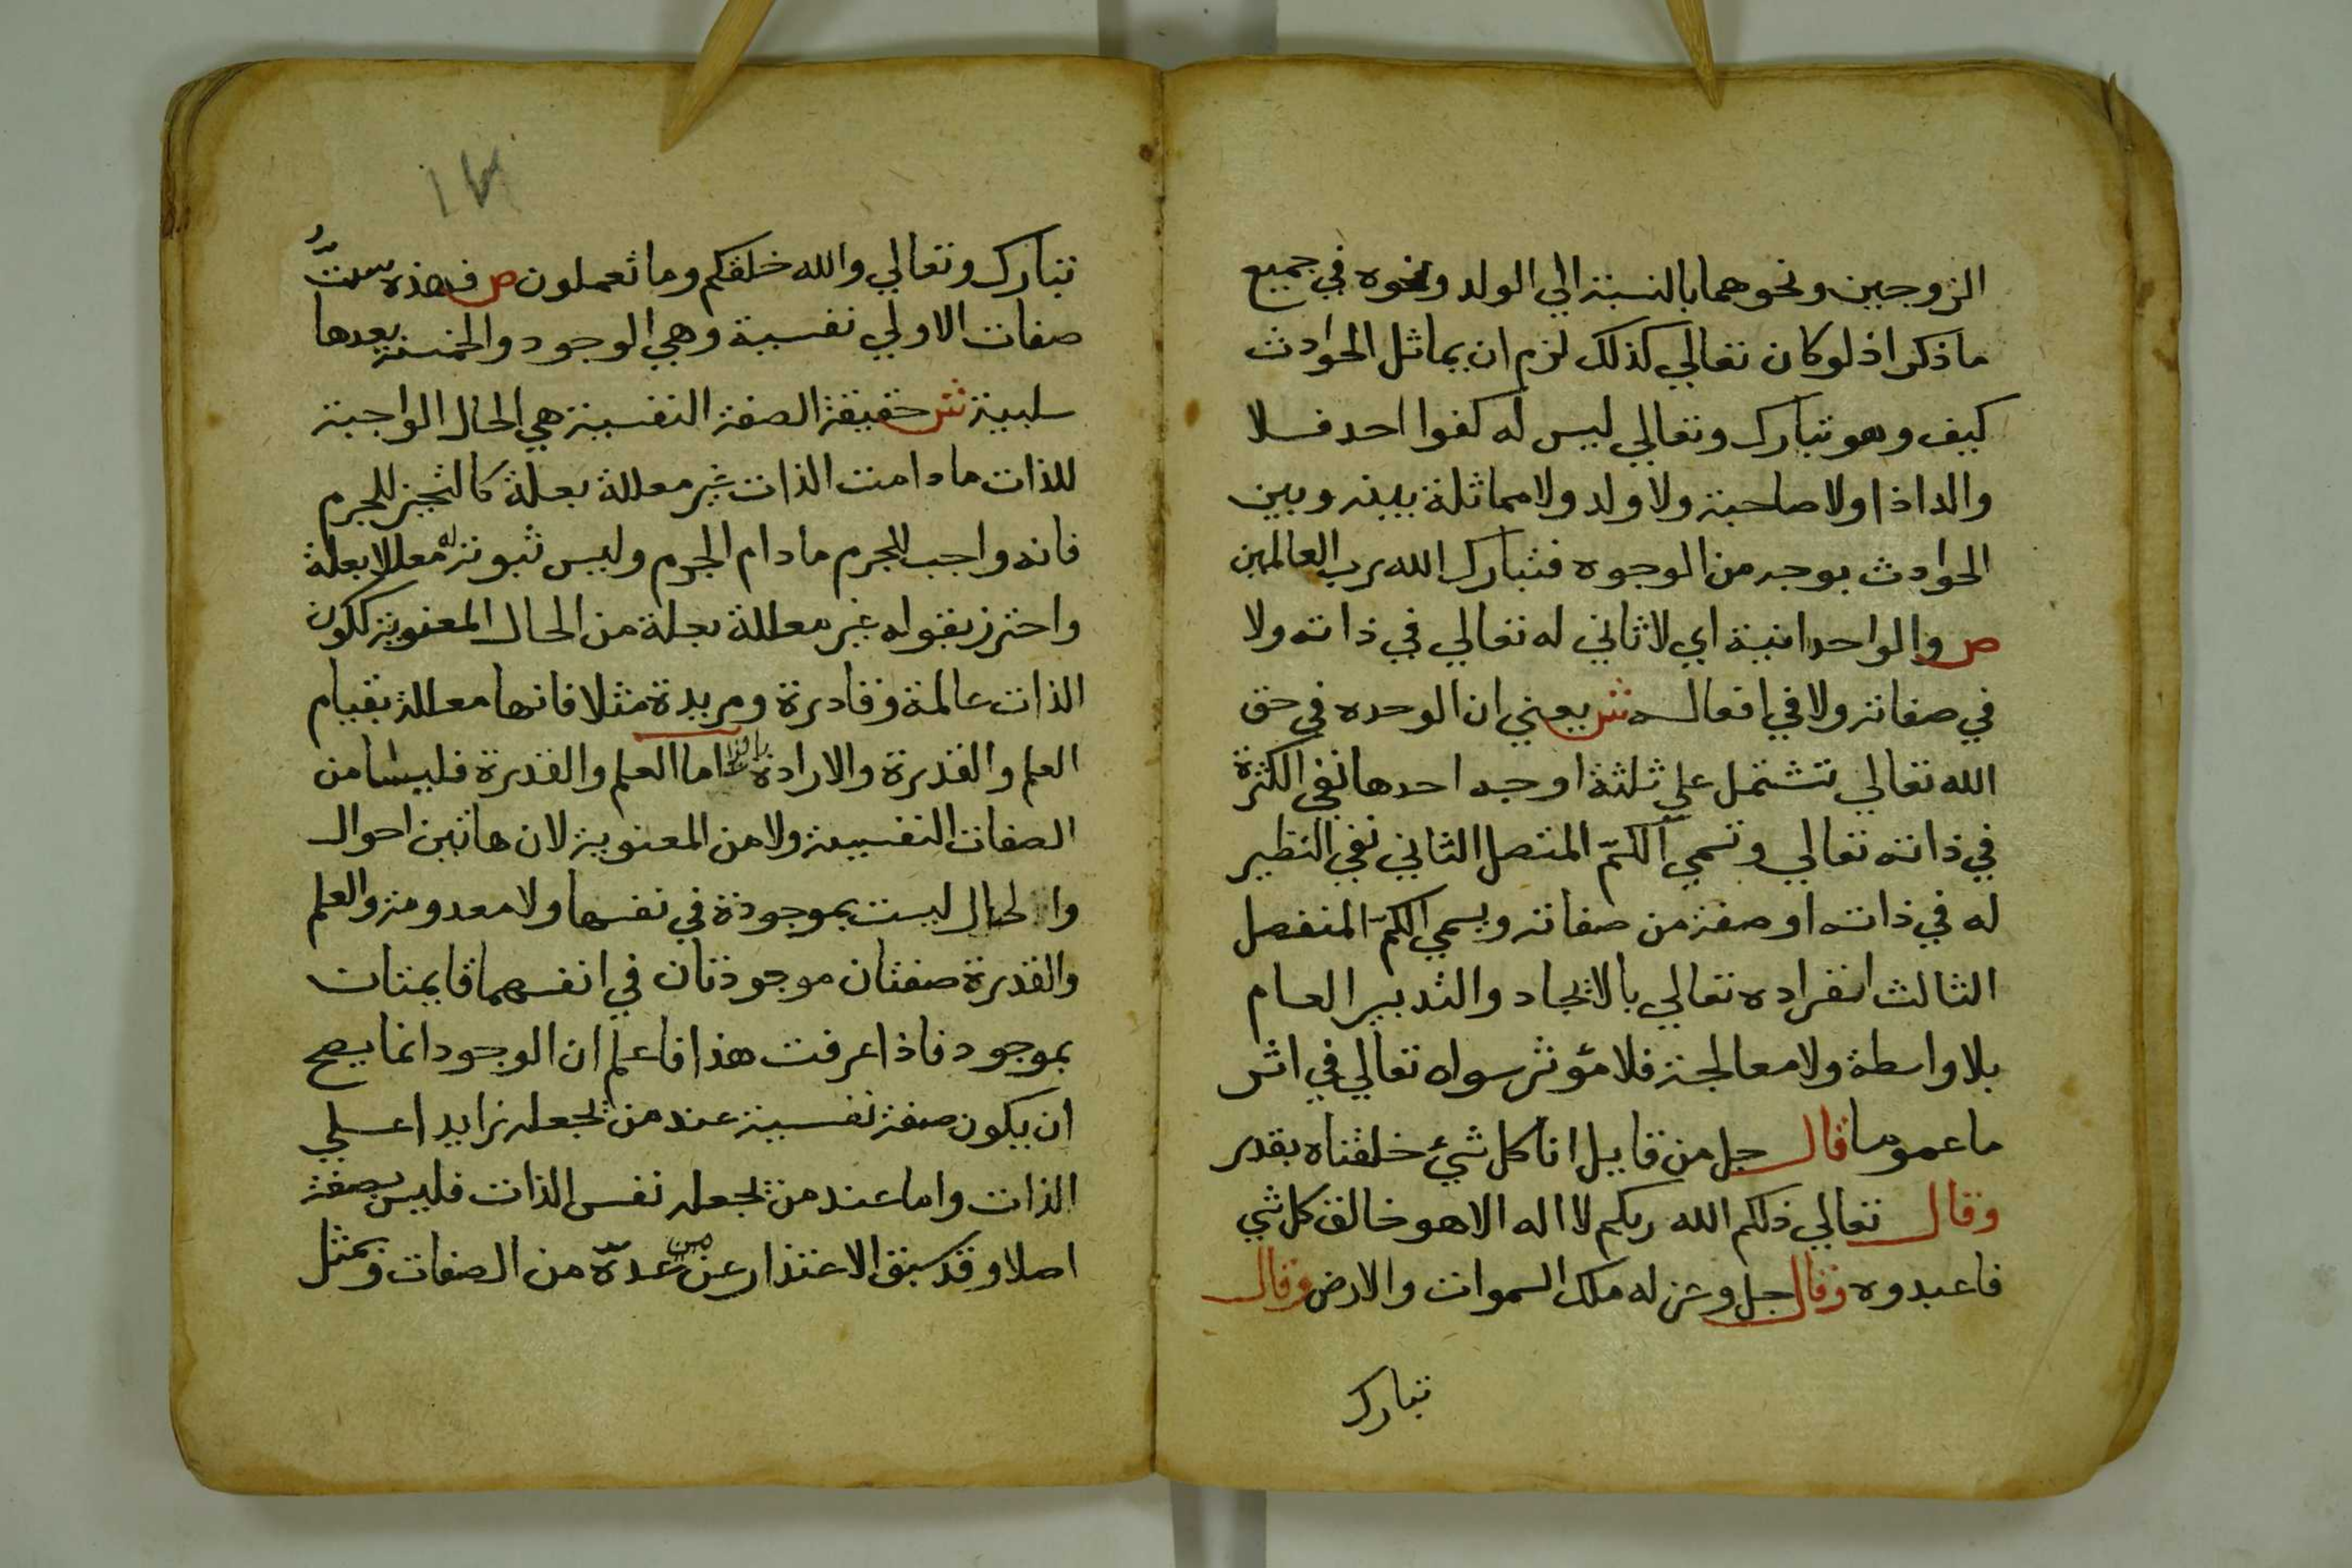 الزوجين ونحوهما بالنسبة الي الولد ونحوه في جميع
ما ذكر اذ لو كان تعالي كذلك لزم ان يماثل الحوادث
كيف وهو تبارك وتعالي ليس له كفوا احد فلا
والد اذا ولا صاحبة ولا ولد ولا مماثلة بينه وبين
الحوادث بوجه من الوجوه فتبارك الله رب العالمين
ص والواحدانية اي لا ثاني له تعالي في ذاته ولا
في صفاته ولا في افعاله ش يعني ان الوحده في حق
الله تعالي تشتمل علي ثلثة اوجه احدها نفي الكثرة
في ذاته تعالي وتسمي الكمّ المتصل الثاني نفي النظير
له في ذاته او صفة من صفاته ويسمي الكمّ المنفصل
الثالث انفراده تعالي بالايجاد والتدبير العام
بلا واسطة ولا معالجة فلا مؤثر سواه تعالي في اثر
ما عموما قال جل من قايل انا كل شيء خلقناه بقدر
وقال تعالي ذلكم الله ربكم لا اله الا هو خالق كل شي
فاعبدوه وقال جل وعز له ملك السموات والارض وقال
تبارك
١٧
تبارك وتعالي والله خلقكم وما تعملون ص فهذه ستُّ
صفات الاولي نفسية وهي الوجود والخمسة بعدها
سلبية ش حقيقة الصفة النفسية هي الحال الواجبة
للذات ما دامت الذات غير معللة بعلة كالتحيز للجرم
فانه واجب للجرم ما دام الجرم وليس ثبوته له معللا بعلة
واحترز بقوله غير معللة بعلة من الحال المعنوية ككون
الذات عالمة وقادرة ومريدة مثلا فانها معللة بقيام
العلم والقدرة والارادة اما العلم والقدرة فليسا من
الصفات النفسية ولا من المعنوية لان هاتين احوال
والحال ليست بموجودة في نفسها ولا معدومة والعلم
والقدرة صفتان موجودتان في انفسهما قايمتان
بموجود فاذا عرفت هذا فاعلم ان الوجود انما يصح
ان يكون صفة نفسية عند من يجعله زايدا علي
الذات واما عند من يجعله نفس الذات فليس بصفة
اصلا وقد سبق الاعتذار عن من عدّه من الصفات وبمثل